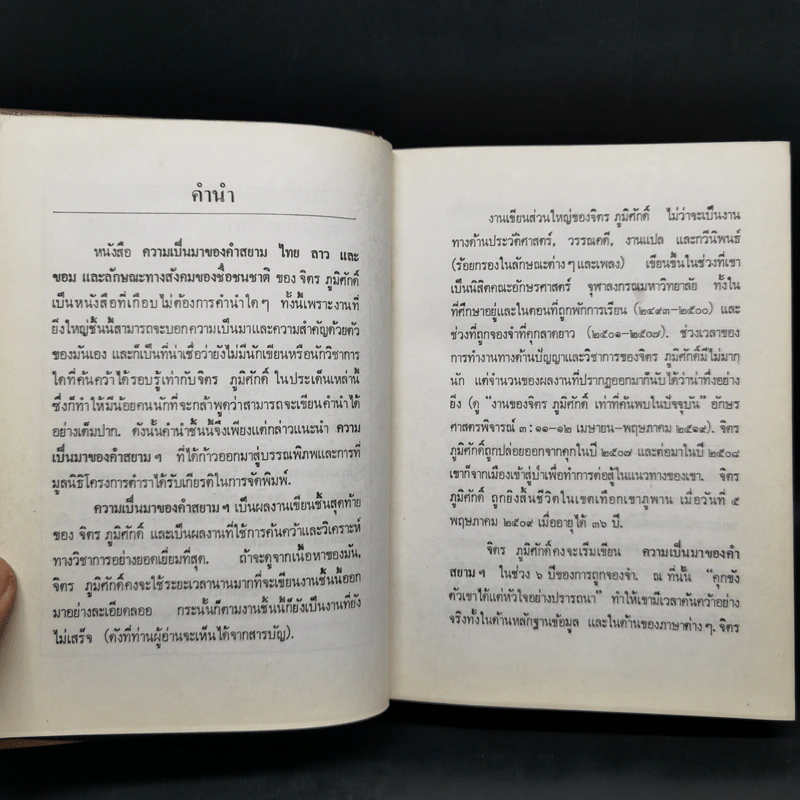 คำนำ
หนังสือ ความเป็นมาของคำสยาม ไทย ลาว และ
ขอม และลักษณะทางสังคมของชื่อชนชาติ ของ จิตร ภูมิศักดิ์
เป็นหนังสือที่เกือบไม่ต้องการคำนำใดๆ ทั้งนี้เพราะงานที่
ยิ่งใหญ่ชิ้นนี้สามารถจะบอกความเป็นมาและความสำคัญด้วยตัว
ของมันเอง และก็เป็นที่น่าเชื่อว่ายังไม่มีนักเขียนหรือนักวิชาการ
ใดที่ค้นคว้าได้รอบรู้เท่ากับจิตร ภูมิศักดิ์ ในประเด็นเหล่านี้
ซึ่งก็ทำให้มีน้อยคนนักที่จะกล้าพูดว่าสามารถจะเขียนคำนำได้
อย่างเต็มปาก. ดังนั้นคำนำชิ้นนี้จึงเพียงแต่กล่าวแนะนำ ความ
เป็นมาของคำสยามฯ ที่ได้ก้าวออกมาสู่บรรณพิภพและการที่
มูลนิธิโครงการตำราได้รับเกียรติในการจัดพิมพ์.
ความเป็นมาของคำสยามฯ เป็นผลงานเขียนชิ้นสุดท้าย
ของ จิตร ภูมิศักดิ์ และเป็นผลงานที่ใช้การค้นคว้าและวิเคราะห์
ทางวิชาการอย่างยอดเยี่ยมที่สุด. ถ้าจะดูจากเนื้อหาของมัน,
จิตร ภูมิศักดิ์คงจะใช้ระยะเวลานานมากที่จะเขียนงานชิ้นนี้ออก
มาอย่างละเอียดลออ กระนั้นก็ตามงานชิ้นนี้ก็ยังเป็นงานที่ยัง
ไม่เสร็จ (ดังที่ท่านผู้อ่านจะเห็นได้จากสารบัญ).
งานเขียนส่วนใหญ่ของจิตร ภูมิศักดิ์ ไม่ว่าจะเป็นงาน
ทางด้านประวัติศาสตร์, วรรณคดี, งานแปล และกวีนิพนธ์
(ร้อยกรองในลักษณะต่างๆและเพลง) เขียนขึ้นในช่วงที่เขา
เป็นนิสิตคณะอักษรศาสตร์ จุฬาลงกรณมหาวิทยาลัย ทั้งใน
ที่ศึกษาอยู่และในตอนที่ถูกพักการเรียน (๒๔๙๓–๒๕๐๐) และ
ช่วงที่ถูกจองจำที่คุกลาดยาว (๒๕๐๑–๒๕๐๗). ช่วงเวลาของ
การทำงานทางด้านปัญญาและวิชาการของจิตร ภูมิศักดิ์มีไม่มาก
นัก แต่จำนวนของผลงานที่ปรากฏออกมาก็นับได้ว่าน่าทึ่งอย่าง
ยิ่ง (ดู "งานของจิตร ภูมิศักดิ์ เท่าที่ค้นพบในปัจจุบัน" อักษร
ศาสตรพิจารณ์ ๓:๑๑–๑๒ เมษายน–พฤษภาคม ๒๕๑๙). จิตร
ภูมิศักดิ์ถูกปล่อยออกจากคุกในปี ๒๕๐๗ และต่อมาในปี ๒๕๐๘
เขาก็จากเมืองเข้าสู่ป่าเพื่อทำการต่อสู้ในแนวทางของเขา. จิตร
ภูมิศักดิ์ ถูกยิงสิ้นชีวิตในเขตเทือกเขาภูพาน เมื่อวันที่ ๕
พฤษภาคม ๒๕๐๙ เมื่ออายุได้ ๓๖ ปี.
จิตร ภูมิศักดิ์คงจะเริ่มเขียน ความเป็นมาของคำ
สยามฯ ในช่วง ๖ ปีของการถูกจองจำ. ณ ที่นั้น "คุกขัง
ตัวเขาได้แต่หัวใจอย่างปรารถนา" ทำให้เขามีเวลาค้นคว้าอย่าง
จริงทั้งในด้านหลักฐานข้อมูล และในด้านของภาษาต่างๆ. จิตร